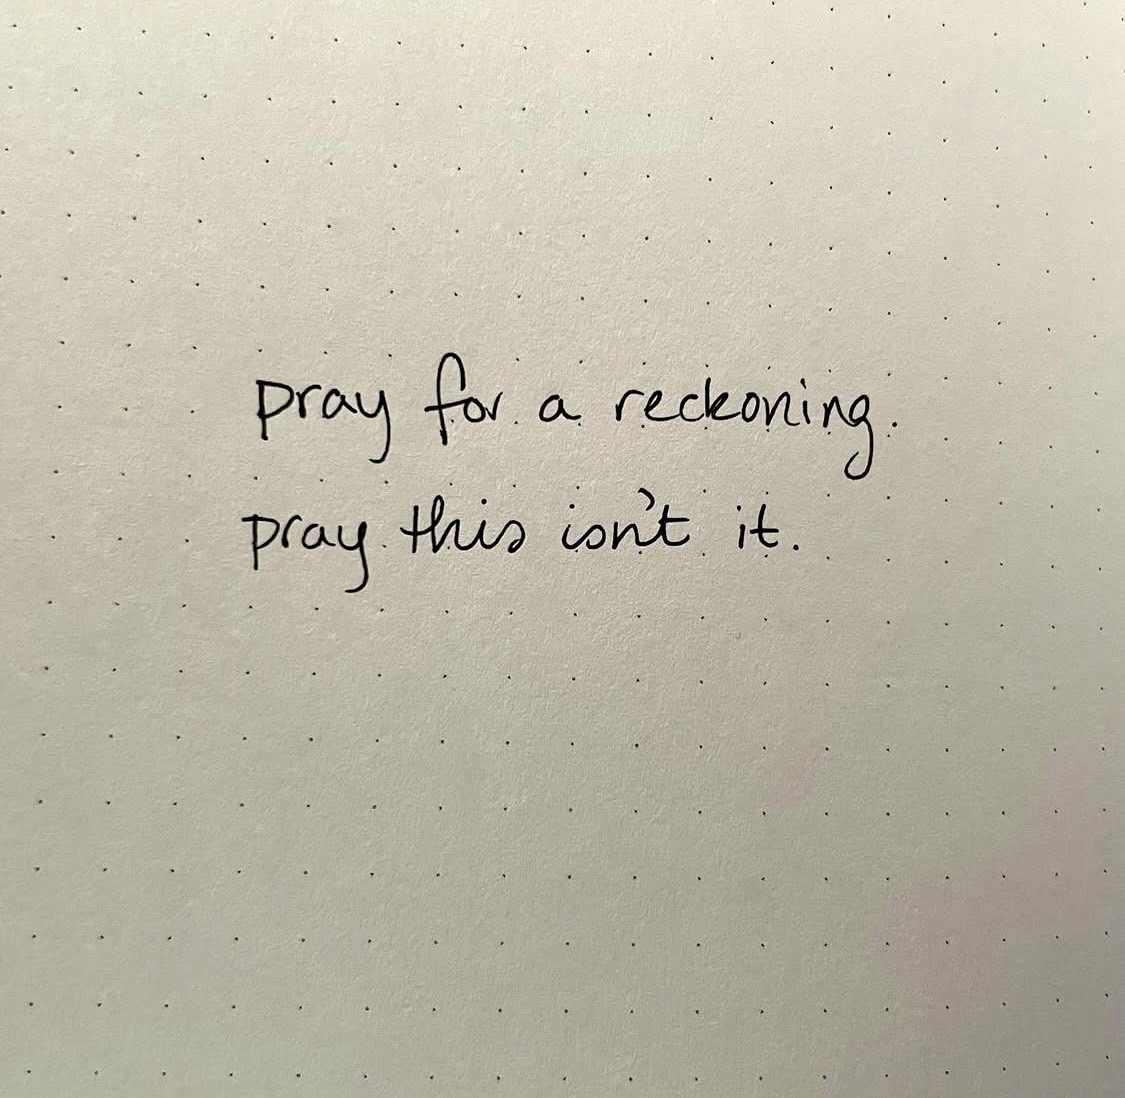 pray for a reckoning.
pray this isn't it.